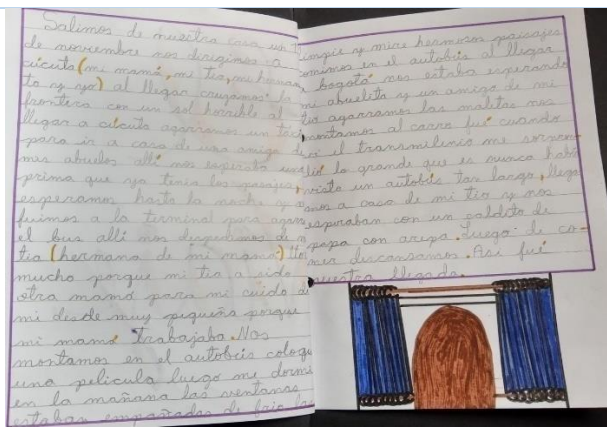 Salimos de nuestra casa un
de noviembre nos dirigimos a
cúcuta (mi mamá, mi tia,
to y yo) al llegar cruzamos la
frontera con un sol horrible al
llegar a cúcuta agarramos un taxi
para ir a casa de una amiga de
mis abuelos allí nos esperaba una
prima que ya tenia los pasajes,
esperamos hasta la noche y
fuimos a la terminal para
el bus allí nos despedimos de
tia (hermana de mi mamá)
mucho porque mi tia a sido
otra mamá para mi cuido de
mi desde muy pequeña porque
mi mamá trabajaba. Nos
montamos en el autobús
una pelicula luego me dormi
en la mañana las ventanas
estaban empañadas
limpie y mire hermosos paisajes
comimos en el autobús al llegar
bogotá nos estaba esperando
mi abuelito y un amigo de mi
tio agarramos las maletas nos
montamos al carro fué cuando
vi el transmilenio me
lo grande que es nunca
visto un autobús tan largo,
a casa de mi tio y nos
esperaban con un caldito de
papa con arepa. Luego de co-
mer descansamos. Asi fué
nuestra llegada.